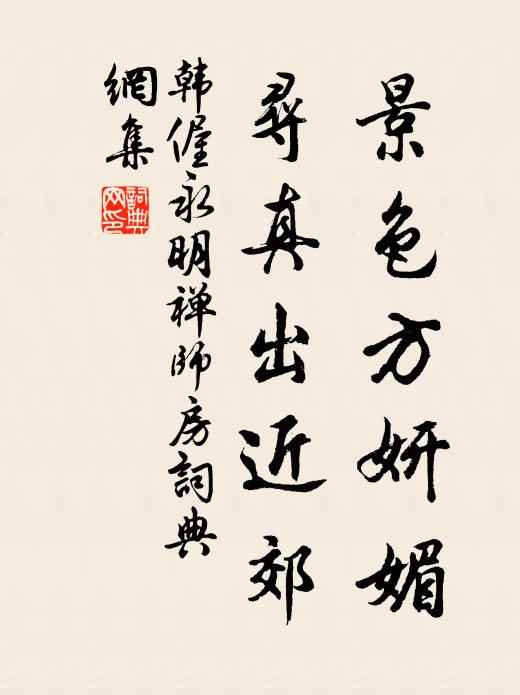 景色方妍媚
尋真出近郊
韩偓永明禅师房詞典
網集
詞典
网印